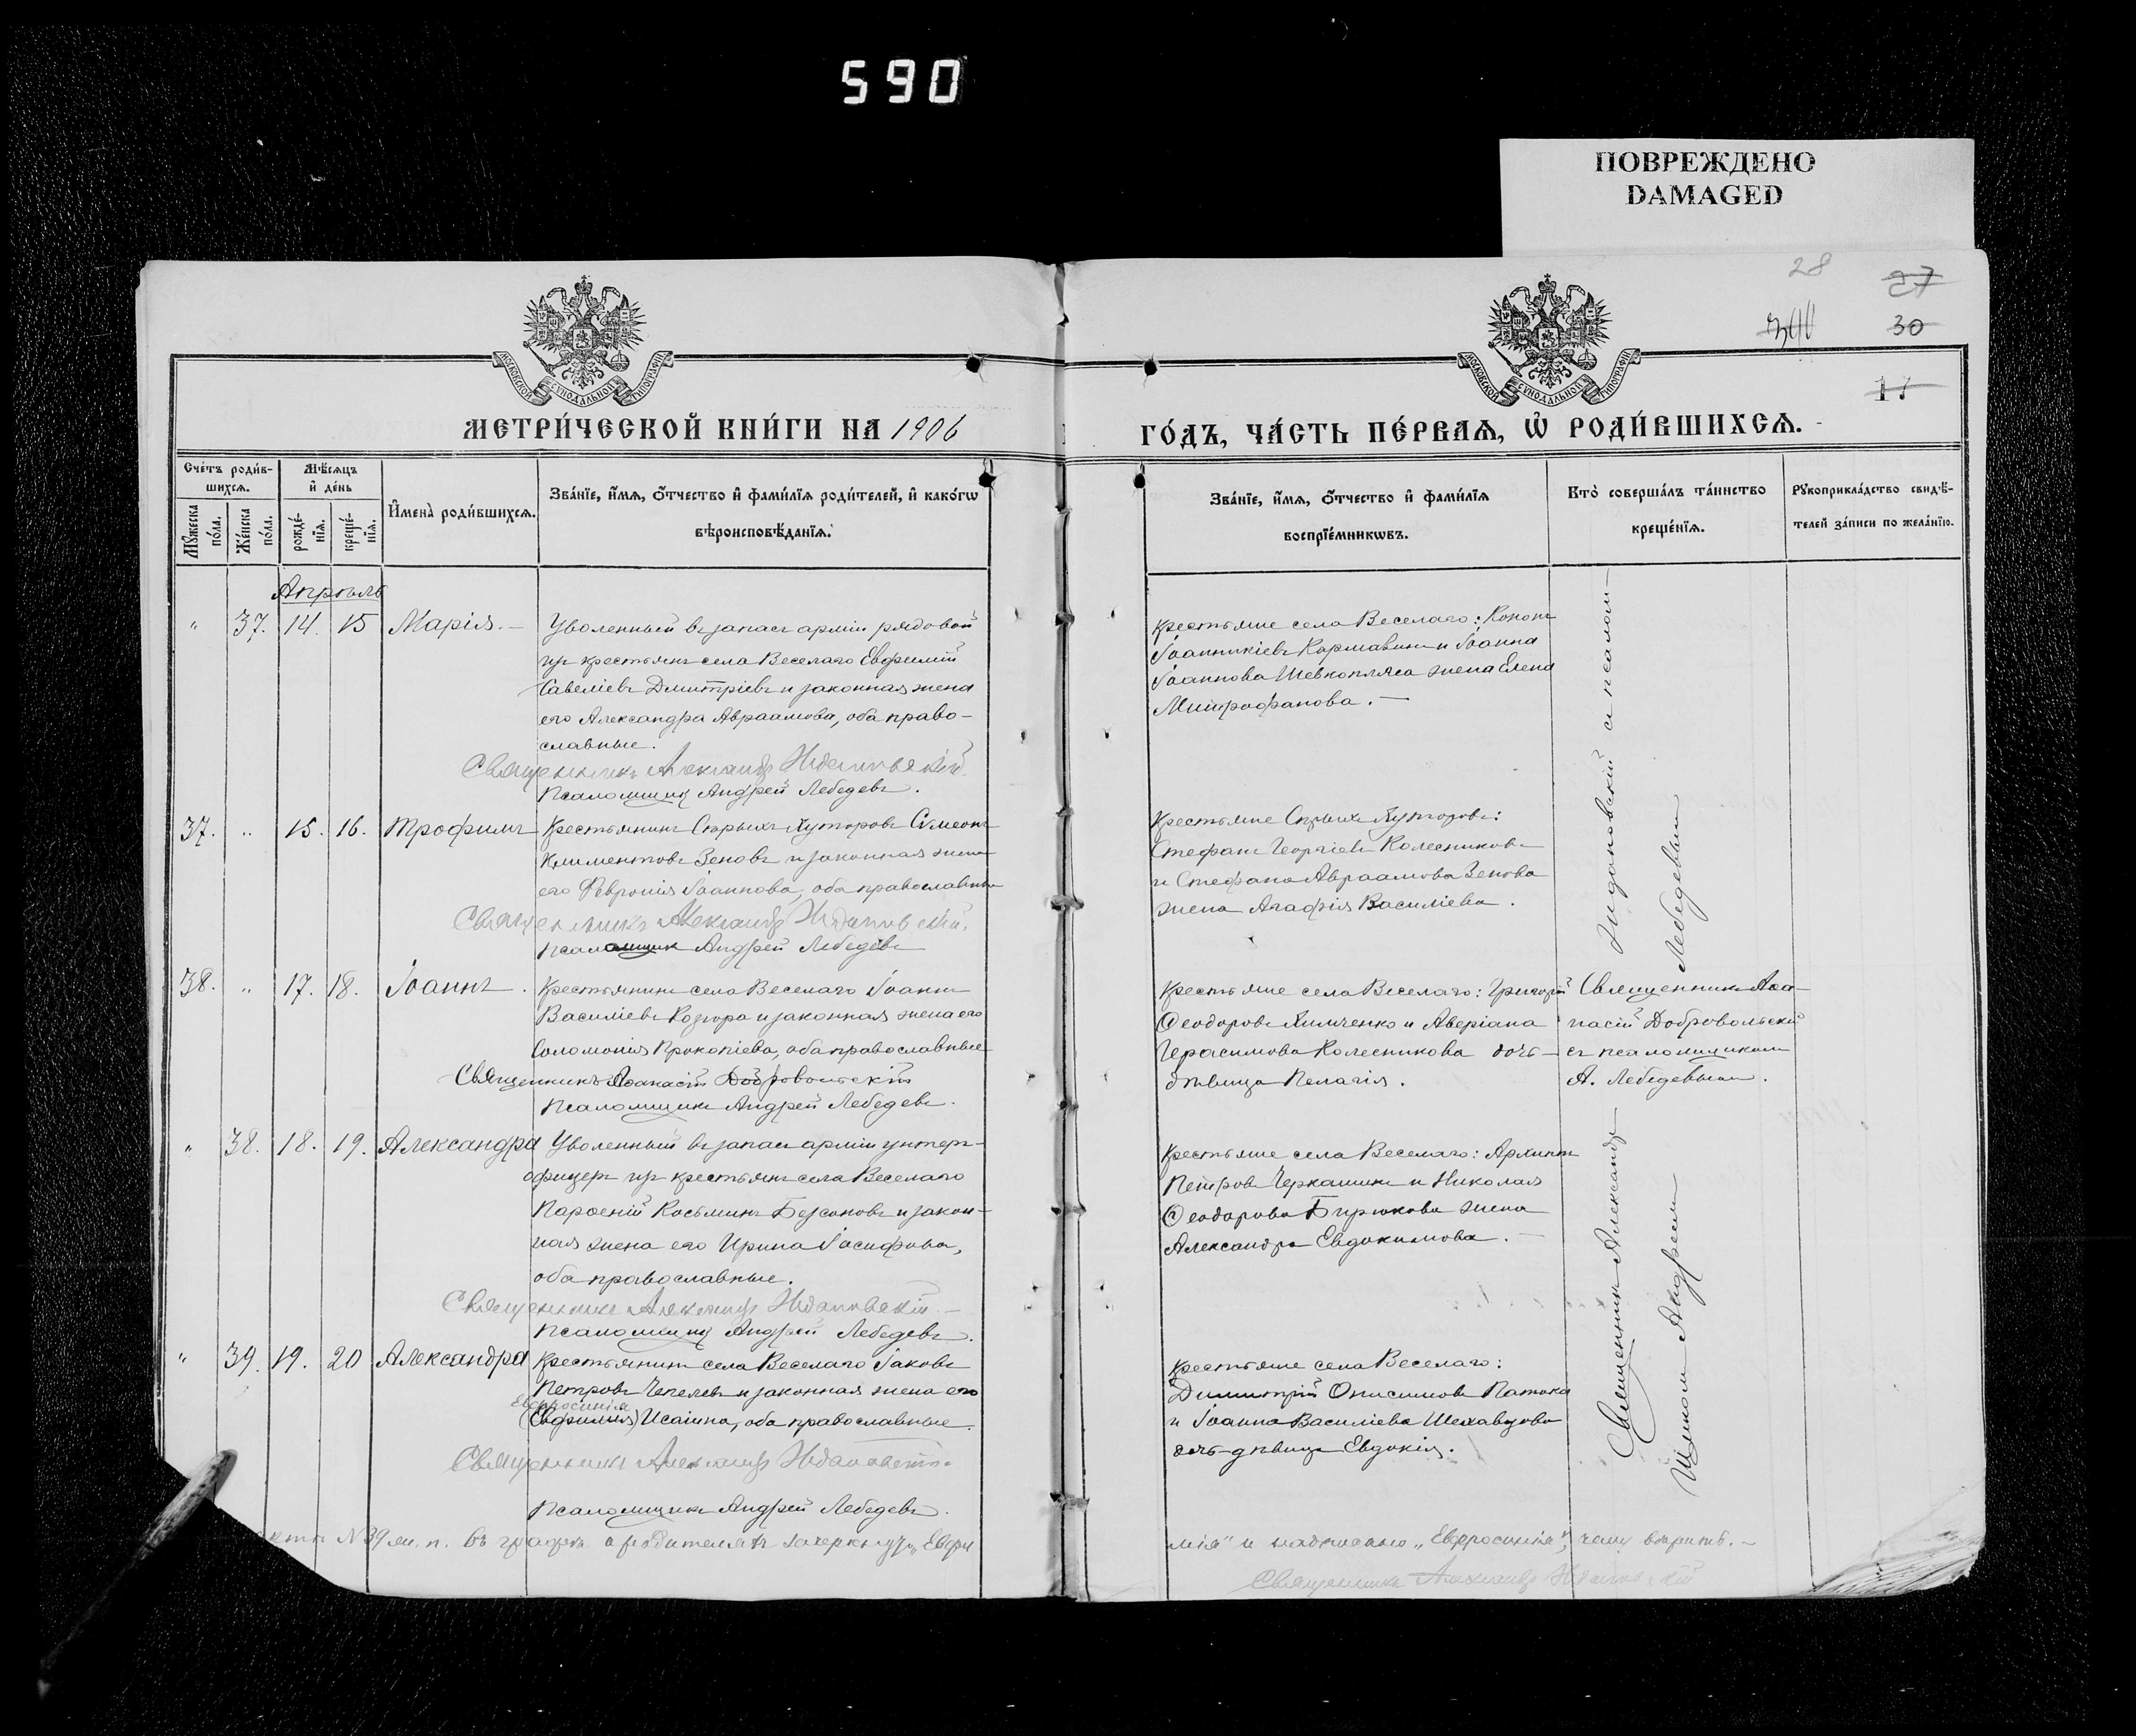 590
ПОВРЕЖДЕНО
DAMAGED
28
27
30
МОСКОВСКОЙ СѴНОДАЛЬНОЙ ТИПОГРАФІИ
МОСКОВСКОЙ СѴНОДАЛЬНОЙ ТИПОГРАФІИ
МЕТРИ́ЧЕСКОЙ КНИ́ГИ НА 1906
ГО́ДЪ, ЧА́СТЬ ПЕ́РВАѦ, Ѡ҆ РОДИ́ВШИХСѦ.
Сче́тъ роди́в-
шихсѧ.
Мѣ́сѧцъ
и҆ де́нь
Мꙋ́жеска
по́ла.
Же́нска
по́ла.
рожде́-
нїѧ.
креще́-
нїѧ.
И҆мена̀ роди́вшихсѧ.
Зва́нїе, и҆́мѧ, ѻ҆́тчество и҆ фами́лїѧ роди́телей, и҆ како́гѡ
вѣроисповѣ́данїѧ.
Зва́нїе, и҆́мѧ, ѻ҆́тчество и҆ фами́лїѧ
воспрїе́мникѡвъ.
Кто̀ соверша́лъ та́инство
креще́нїѧ.
Рꙋкоприкла́дство свидѣ́-
телей за́писи по жела́нїю.
Апрѣль
" 37. 14. 15 Марія. —
Уволенный въ запасъ арміи рядовой
изъ крестьянъ села Веселаго Евфимій
Савеліевъ Димитріевъ и законная жена
его Александра Авраамова, оба право-
славные.
Священникъ Александр Ждановскій
Псаломщикъ Андрей Лебедевъ.
Крестьяне села Веселаго: Кононъ
Іоанникіевъ Кормавинъ и Іоанна
Іоаннова Шевкопляса жена Елена
Митрофанова. —
37. " 15. 16. Трофимъ
Крестьянинъ Сѣрыхъ Хуторовъ Симеонъ
Климентовъ Зеновъ и законная жена
его Феврония Іоаннова, оба православные
Священникъ Александр Ждановскій.
Псаломщик Андрей Лебедевъ
Крестьяне Сѣрыхъ Хуторовъ:
Стефанъ Георгіевъ Колесниковъ
и Стефана Авраамова Зенова
жена Агафія Василіева.
Ждановскій съ псалом—
Лебедевымъ
38. " 17. 18. Іоаннъ.
Крестьянинъ села Веселаго Іоаннъ
Василіевъ Козгора и законная жена его
Соломонія Прокопіева, оба православные
Священникъ Аѳанасій Добровольскій
Псаломщикъ Андрей Лебедевъ.
Крестьяне села Веселаго: Григорій
Ѳеодоровъ Химченко и Аверіана
Герасимова Колесникова дочь—
дѣвица Пелагія.
Священникъ Аѳа-
насій Добровольскій
съ псаломщикомъ
А. Лебедевымъ.
" 38. 18. 19. Александра
Уволенный въ запасъ арміи унтеръ-
офицеръ изъ крестьянъ села Веселаго
Парѳеній Косьминъ Безсоновъ и закон-
ная жена его Ирина Іосифова,
оба православные.
Священникъ Александр Ждановскій —
Псаломщикъ Андрей Лебедевъ.
Крестьяне села Веселаго: Архипъ
Петровъ Черкашинъ и Николая
Ѳеодорова Бирюкова жена
Александра Евдокимова. —
Священникъ Александр
Щикомъ Андреемъ
" 39. 19. 20 Александра
Крестьянинъ села Веселаго Іаковъ
Петровъ Чепелевъ и законная жена его
Евфросинія
(Евфимія) Исаіина, оба православные.
Священникъ Александр Ждановскій.
Псаломщикъ Андрей Лебедевъ.
Крестьяне села Веселаго:
Димитрій Онисимовъ Патока
и Іоанна Василіева Шехавцова
дочь-дѣвица Евдокія.
N 39 ж. п. въ графѣ о родителяхъ зачеркнуто „Евфи
мія" и надписано „Евфросинія", чему вѣрить. —
Священникъ Александр Ждановскій